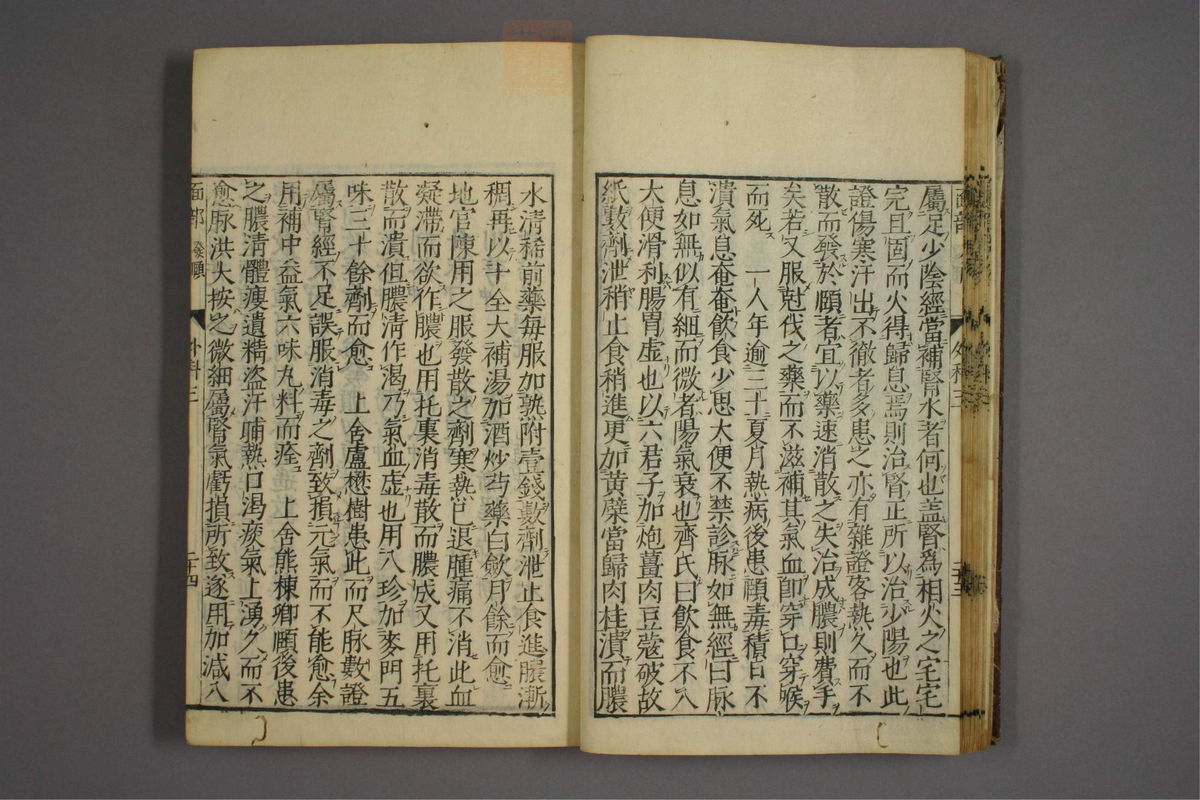 屬足少陰經當補腎水者何也蓋腎爲相火之宅宅
完且固而火得歸息焉則治腎正所以治少陽也此
證傷寒汗出不徹者多患之亦有雜證客熱久而不
散而發於頤者宜以藥速消散之失治成膿則費手
矣若又服尅伐之藥而不滋補其氣血即穿口穿喉
而死 一人年逾三十夏月熱病後患頤毒積日不
潰氣息奄奄飲食少思大便不禁診脉如無經曰脉
息如無似有細而微者陽氣衰也齊氏曰飲食不入
大便滑利腸胃虚也以六君子加炮薑肉豆蔻破故
紙數劑泄稍止食稍進更加黄蘗當歸肉桂潰而膿
水清稀前藥每服加熟附壹錢數劑泄止食進膿漸
稠再以十全大補湯加酒炒芍藥白歛月餘而愈
地官陳用之服發散之劑寒熱已退腫痛不消此血
凝滯而欲作膿也用托裏消毒散而膿成又用托裏
散而潰但膿清作渴乃氣血虚也用八珍加麥門五
味三十餘劑而愈 上舍盧懋樹患此而尺脉數證
屬腎經不足誤服消毒之劑致損元氣而不能愈余
用補中益氣六味丸料而痊 上舍熊棟卿頤後患
之膿清體瘦遺精盗汗晡熱口渴痰氣上湧久而不
愈脉洪大按之微細屬腎氣虧損所致遂用加減八
面部 發頤 外科三 二十四